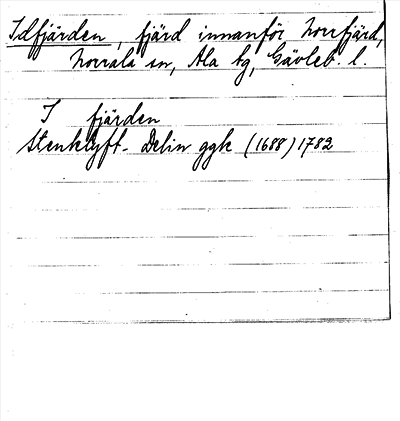 Idfjärden, fjärd innanför Norrfjärd,
Norrala sn, Ala tg, Gävleb. l.
I fjärden
Stenklyft- Delin ggk (1688) 1782